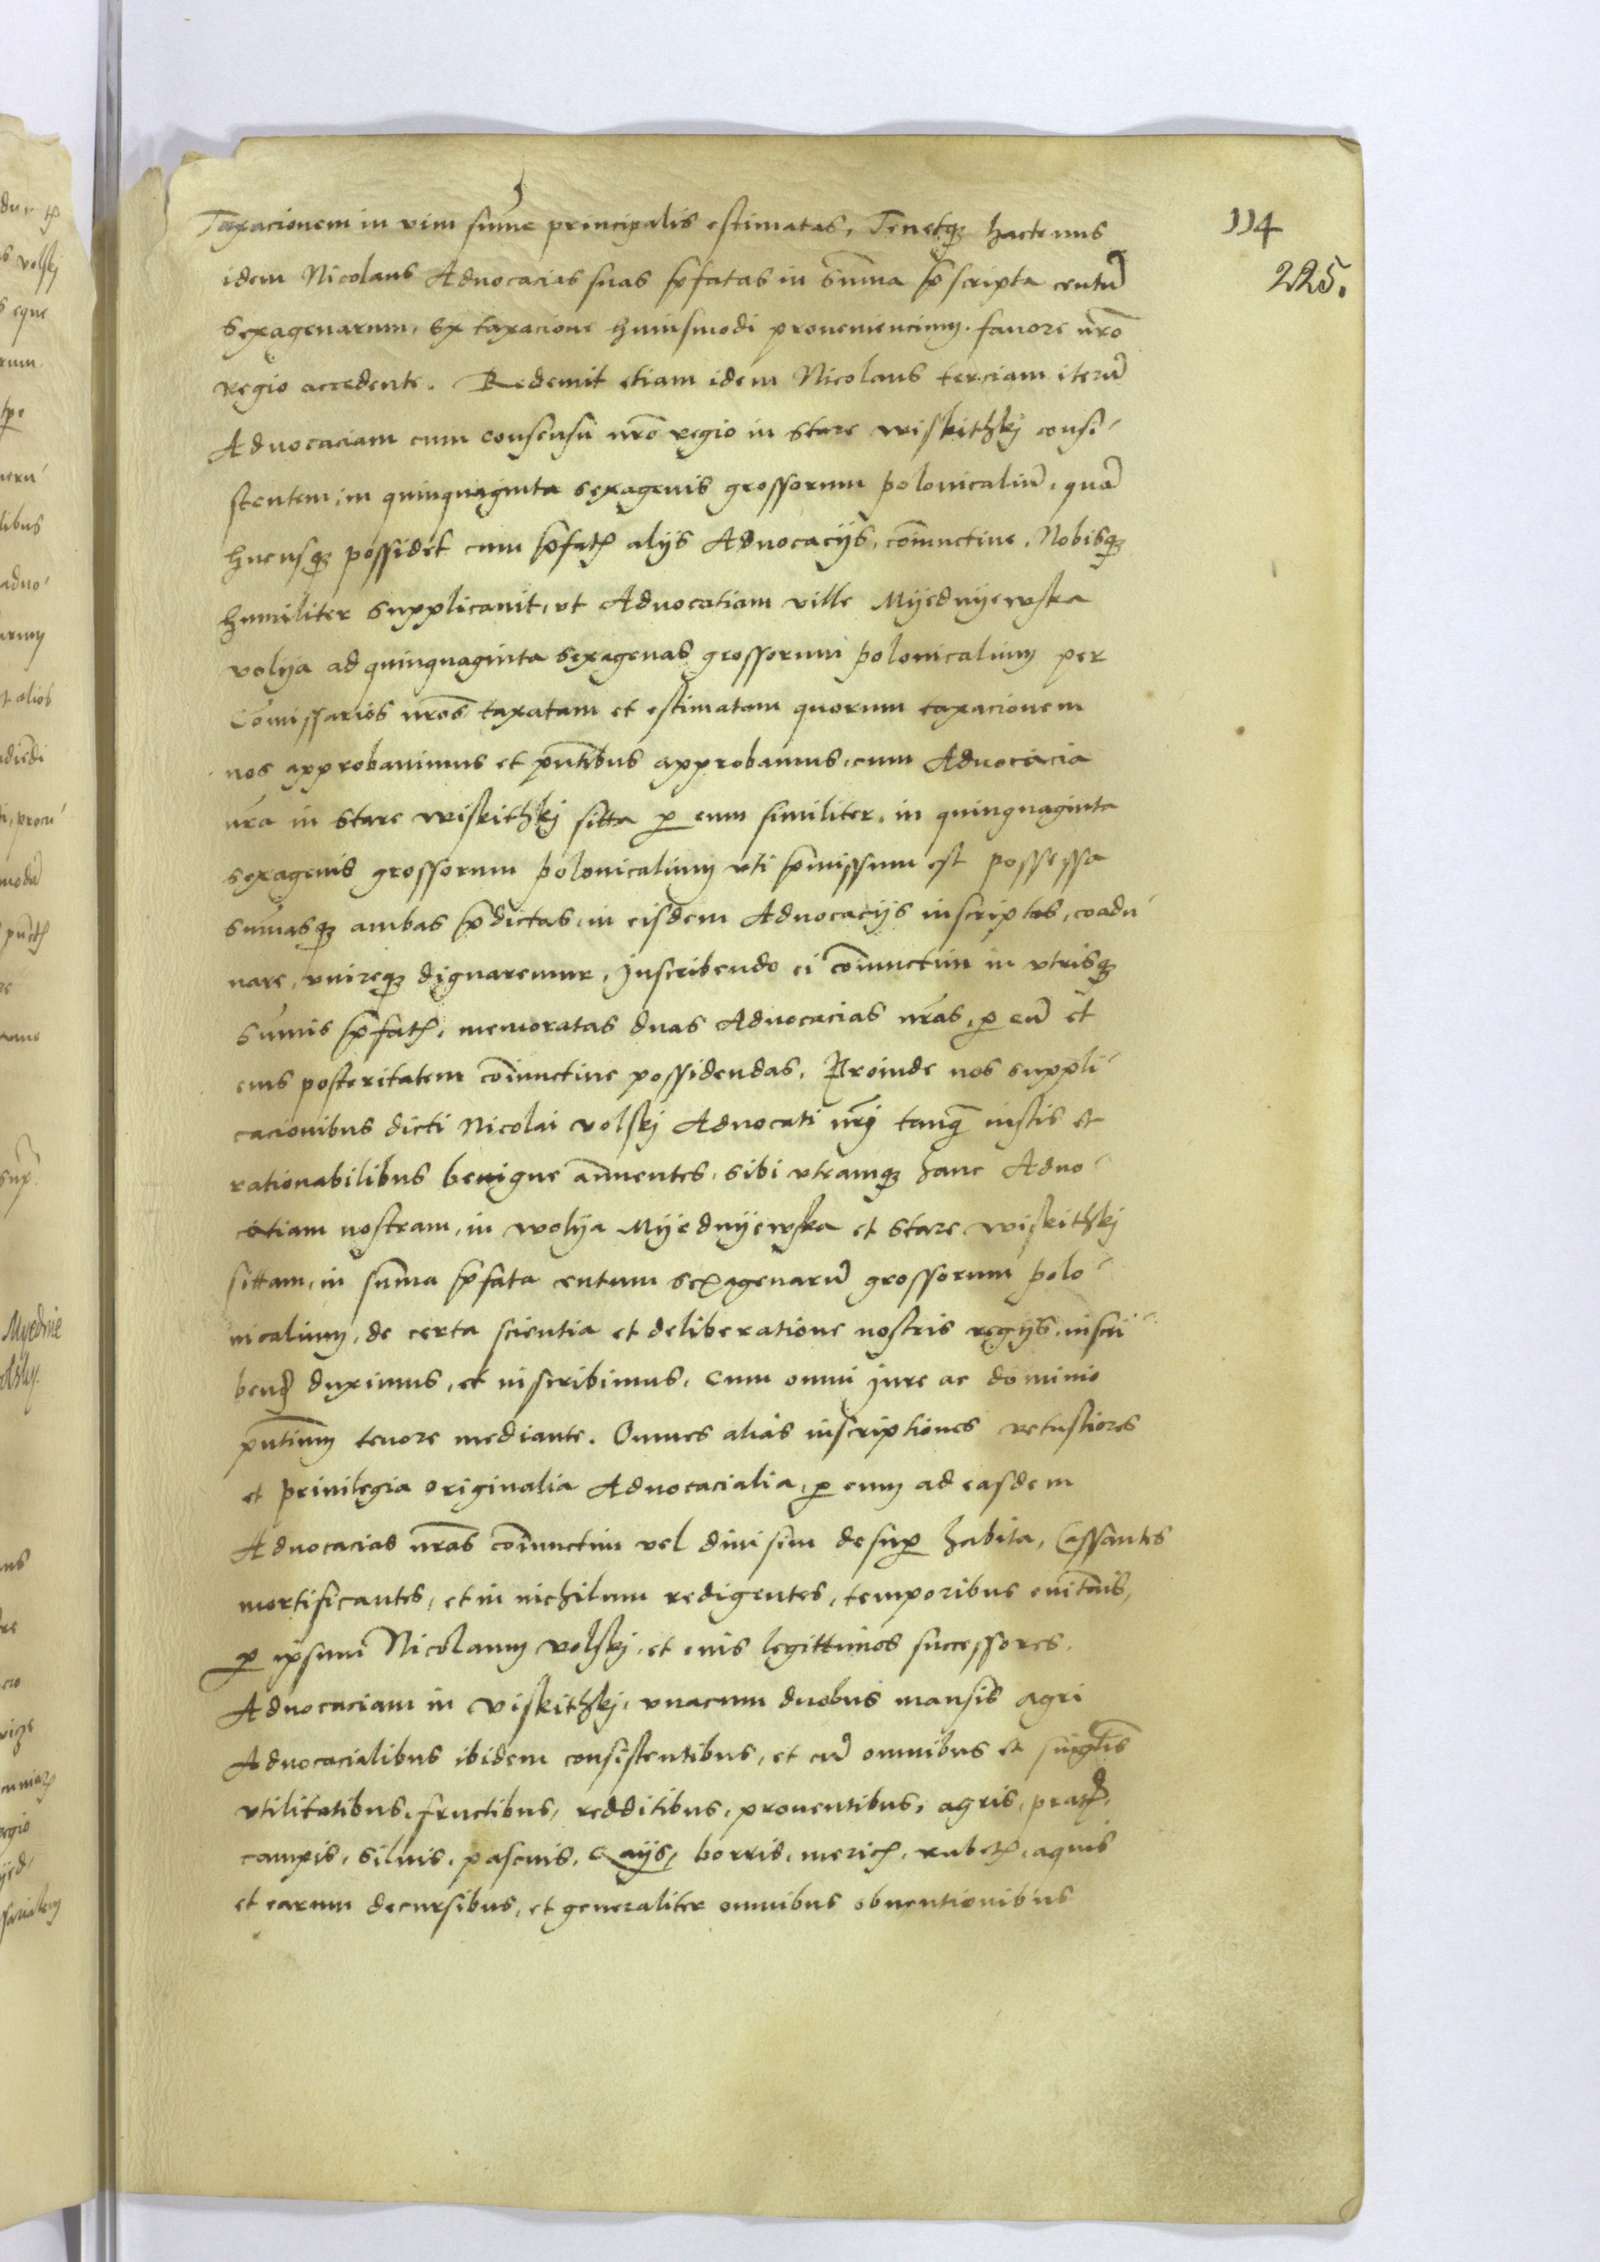 114
225.
Taxacionem in vim sum̄e principalis estimatas, Tenetq̨ hactenus
idem Nicolaus Advocacias suas p̄fatas in sum̄a p̄scripta centū
sexagenarum, ex taxacione huiusmodi proveniencium, favore nr̄o
regio accedente. Redemit etiam idem Nicolaus terciam iterū
Advocaciam cum consensu nr̄o regio in Stare wiskithkj consi-
stentem, in quinquaginta sexagenis grossorum polonicaliū, quā
hucusq̨ possidet cum p̄fat̨ alijs Advocacijs, coniunctive, Nobisq̨
humiliter supplicavit, ut Advocatiam ville Myednyewska
volya ad quinquaginta sexagenas grossorum polonicalium per
Com̄issarios nr̄os taxatam et estimatam quorum taxacionem
nos approbavimus et p̄ntibus approbamus, cum Advocacia
nr̄a in Stare wiskithkj sitta p eum similiter, in quinquaginta
sexagenis grossorum polonicalium uti p̄missum est possessa
sum̄asq̨ ambas p̄dictas, in eisdem Advocacijs inscriptas, coadu-
nare, unireq̨ dignaremur, Inscribendo ei coniunctim in utrisq̨
sum̄is p̄fat̨, memoratas duas Advocacias nr̄as, p eū et
eius posteritatem coniunctive possidendas, Proinde nos suppli-
cacionibus dicti Nicolai volskj Advocati nr̄j tanq̄ iustis et
rationabilibus benigne an̄uentes, sibi utramq̨ hanc Advo-
catiam nostram, in wolya Myednyewska et Stare wiskithkj
sittam, in sum̄a p̄fata centum sexagenarū grossorum polo-
nicalium, de certa scientia et deliberatione nostris regijs, inscri-
bend̨ duximus, et inscribimus, Cum omni jure ac dominio
p̄ntium tenore mediante. Omnes alias inscriptiones vetustiores
et privilegia originalia Advocacialia, p eum ad easdem
Advocacias nr̄as coniunctim vel divisim desup habita, Cassantes
mortificantes, et in nichilum redigentes, temporibus evit̄nis,
p ipsum Nicolaum volskj, et eius legittimos successores,
Advocaciam in viskithkj, unacum duobus mansis agri
Advocacialibus ibidem consistentibus, et cū omnibus et singl̄is
utilitatibus, fructibus, redditibus, proventibus, agris, prat̨,
campis, silvis, pascuis, gajis, borris, meric̨, rubet̨, aquis
et earum decursibus, et generaliter omnibus obventionibus